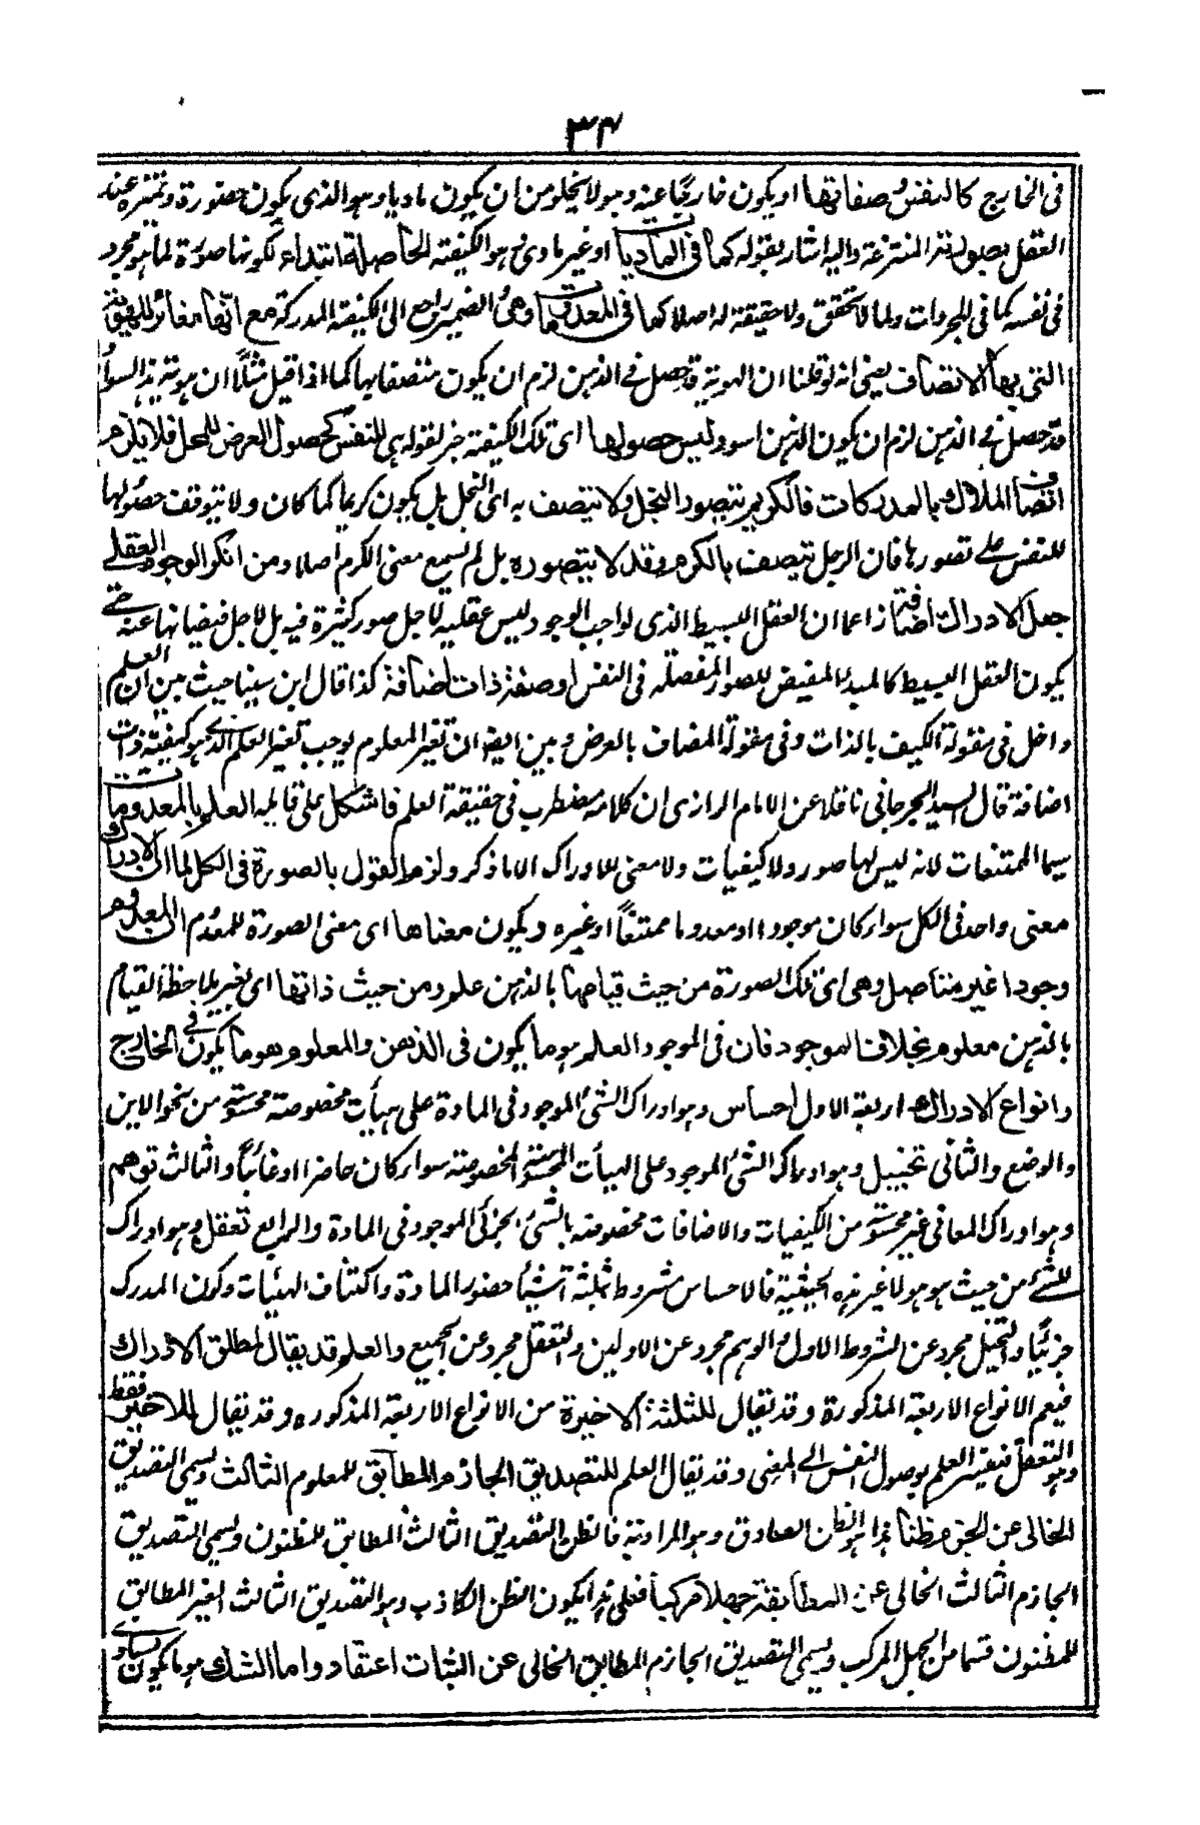 ٣٤
فى الخارج كالنفس وصفاتها او يكون خارجيا عنه وهو لا يخلو من ان يكون ماديا وهو الذى يكون حضوره وتميزه عند
العقل بصورته المنتزعة واليه اشار بقوله كما فى الماديات او غير مادى وهو الكيفية الحاصلة ابتداء لكونها صورة لما هو مجرد
فى نفسه كما فى المجردات ولما لا تحقق ولا حقيقة له اصلا كما فى المعدومات وهى الضمير راجع الى الكيفية المدركة مع انها مغائرة للهوية
التى بها الاتصاف يعنى انه لو قلنا ان الهوية قد حصل فى الذهن لزم ان يكون متصفا بها كما اذا قيل مثلا ان هوية هذا السواد
قد حصل فى الذهن لزم ان يكون الذهن اسود ليس حصولها اى تلك الكيفية خبر لقوله هى للنفس كحصول العرض للمحل فلا يلزم
اتصاف الملاك بالمدركات فالكريم يتصور البخل ولا يتصف به اى البخل بل يكون كريما كما كان ولا يتوقف حصولها
للنفس على تصورها فان الرجل يتصف بالكرم وقد لا يتصوره بل لم يسمع معنى الكرم اصلا ومن انكر الوجود العقلى
جعل الادراك اضافة زاعما ان العقل البسيط الذى لواجب الوجود ليس عقليه لاجل صور كثيرة فيه بل لاجل فيضانها عنه حتى
يكون العقل البسيط كالمبدأ المفيض للصور المفصلة فى النفس او صفة ذات اضافة كذا قال ابن سينا حيث بين ان العلم
داخل فى مقولة الكيف بالذات وفى مقولة المضاف بالعرض وبين ايضا ان تغير المعلوم يوجب تغير العلم الذى هو كيفية ذات
اضافة قال السيد الجرجانى ناقلا عن الامام الرازى ان كلامه مضطرب فى حقيقة العلم فاشكل على قائله العلم بالمعدومات
سيما الممتنعات لانه ليس لها صور ولا كيفيات ولا معنى للادراك الا ما ذكر ولزم القول بالصورة فى الكل لما ان الادراك
معنى واحد فى الكل سواء كان موجودا او معدوما ممتنعا او غيره ويكون معناها اى معنى الصورة للمعدوم ان المعدوم
وجودا غير متاصل وهى اى تلك الصورة من حيث قيامها بالذهن علم ومن حيث ذاتها اى بغير ملاحظة القيام
بالذهن معلوم بخلاف الموجود فان فى الموجود العلم هو ما يكون فى الذهن والمعلوم هو ما يكون فى الخارج
وانواع الادراك اربعة الاول احساس وهو ادراك الشئ الموجود فى المادة على هيأت مخصوصة محسوسة من نحو الاين
والوضع والثانى تخييل وهو ادراك الشئ الموجود على الهيأت المحسوسة المخصوصة سواء كان حاضرا او غائبا والثالث توهم
وهو ادراك المعانى غير محسوسة من الكيفيات والاضافات مخصوصة بالشئ الجزئى الموجود فى المادة والرابع تعقل وهو ادراك
للشئ من حيث هو هو لا غير هذه الحيثية فالاحساس مشروط بثلثة اشياء حضور المادة واكتناف الهئيات وكون المدرك
جزئيا والتخيل مجرد عن الشرط الاول والوهم مجرد عن الاولين والتعقل مجرد عن الجميع والعلم قد يقال لمطلق الادراك
فيعم الانواع الاربعة المذكورة وقد يقال للثلثة الاخيرة من الانواع الاربعة المذكوره وقد يقال للاخير فقط
وهو التعقل فيفسر العلم بوصول النفس الى المعنى وقد يقال العلم للتصديق الجازم المطابق للمعلوم الثالث ويسمى التصديق
الخالى عن الجزم ظنا هذا هو الظن الصادق وهو المراد فيه فالظن التصديق الثالث المطابق للمظنون ويسمى التصديق
الجازم الثالث الخالى عن المطابقة جهلا مركبا فعلى هذا يكون الظن الكاذب وهو التصديق الثالث الغير المطابق
للمظنون قسما من الجهل المركب ويسمى التصديق الجازم المطابق الخالى عن الثبات اعتقادا واما الشك هو ما يكون تساوى